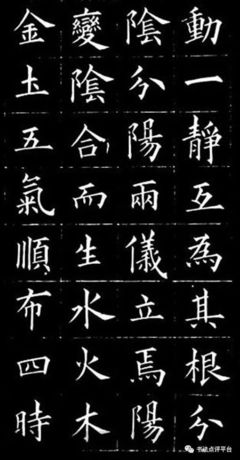 動一靜互為其根分
陰分陽兩儀立焉陽
變陰合而生水火木
金土五氣順布四時
书法点评平台